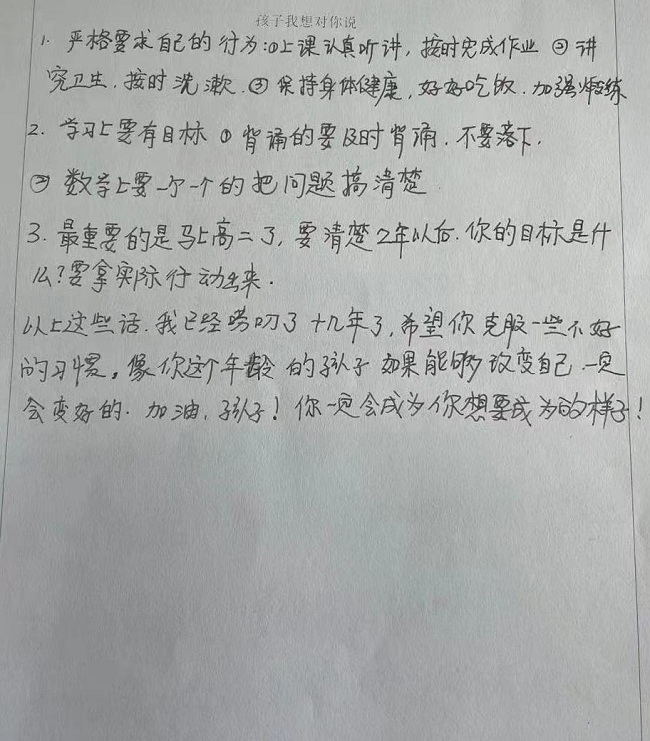 孩子我想对你说
1. 严格要求自己的行为:①上课认真听讲,按时完成作业 ②讲
究卫生,按时洗漱.③保持身体健康,好好吃饭.加强锻练
2. 学习上要有目标 ①背诵的要及时背诵.不要落下.
②数学上要一个一个的把问题搞清楚
3. 最重要的是马上高二了,要清楚2年以后.你的目标是什
么?要拿实际行动出来.
以上这些话.我已经唠叨了十几年了,希望你克服一些不好
的习惯。像你这个年龄的孩子如果能够改变自己.一定
会变好的.加油,孩子!你一定会成为你想要成为的样子!